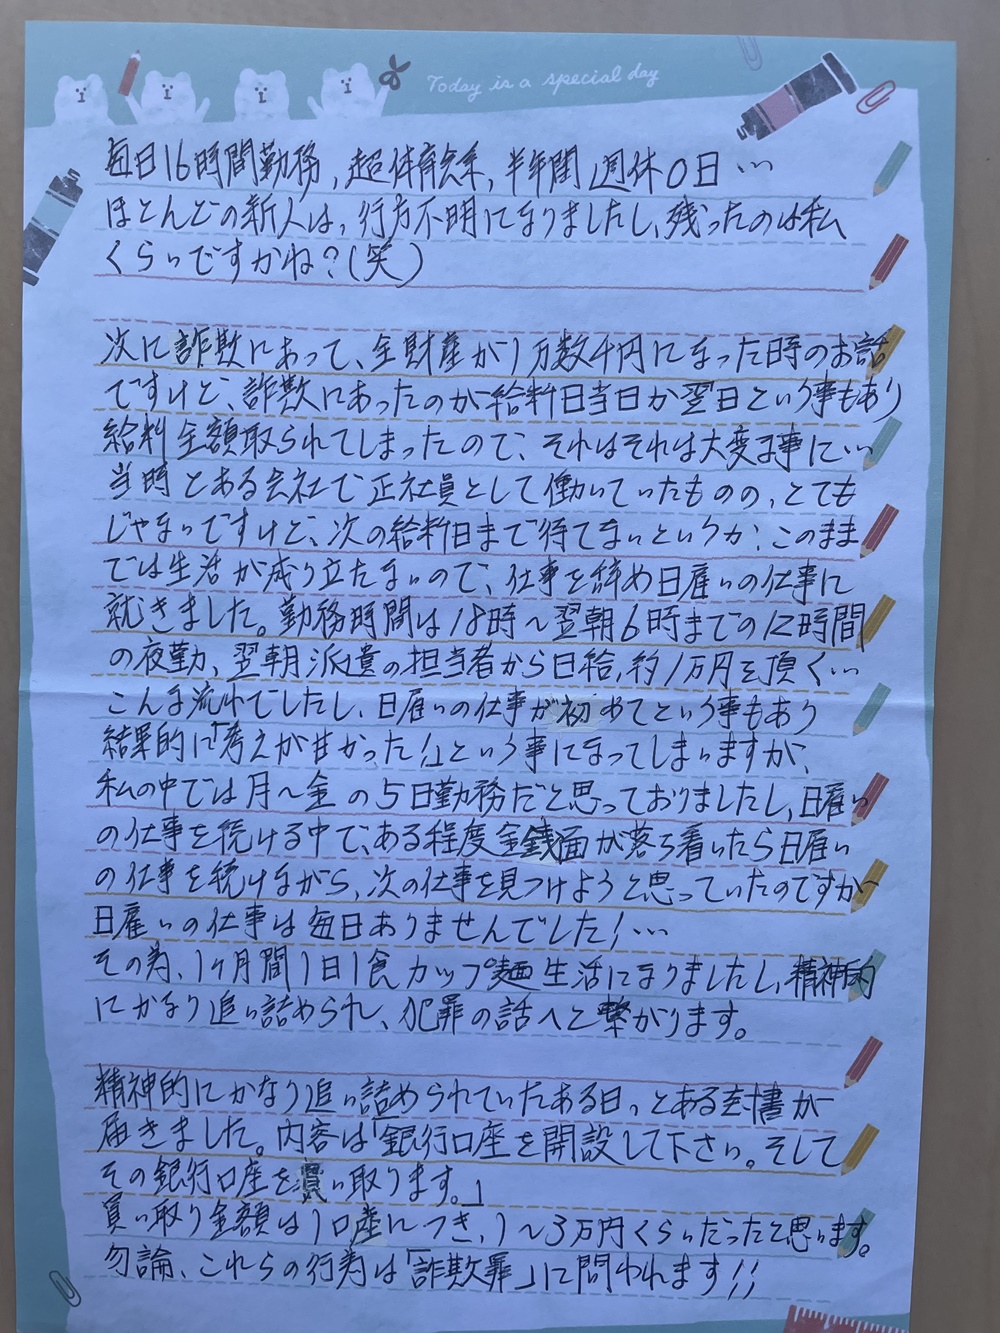 Today is a special day
毎日16時間勤務，超体育会系，半年間週休0日…
ほとんどの新人は，行方不明になりましたし，残ったのは私
くらいですかね？(笑)
次に詐欺にあって、全財産が1万数千円になった時のお話
ですけど、詐欺にあったのが給料日当日か翌日という事もあり
給料全額取られてしまったので、それはそれは大変な事に…
当時とある会社で正社員として働いていたものの，とても
じゃないですけど、次の給料日まで待てないというか、このまま
では生活が成り立たないので、仕事を辞め日雇いの仕事に
就きました。勤務時間は18時〜翌朝6時までの12時間
の夜勤、翌朝派遣の担当者から日給，約1万円を頂く…
こんな流れでしたし、日雇いの仕事が初めてという事もあり
結果的に「考えが甘かった!」という事になってしまいますが、
私の中では月〜金の5日勤務だと思っておりましたし，日雇い
の仕事を続ける中で、ある程度金銭面が落ち着いたら日雇い
の仕事を続けながら，次の仕事を見つけようと思っていたのですが
日雇いの仕事は毎日ありませんでした!…
その為、1ヶ月間1日1食カップ麺生活になりましたし，精神的
にかなり追い詰められ、犯罪の話へと繋がります。
精神的にかなり追い詰められていたある日、とある封書が
届きました。内容は「銀行口座を開設して下さい。そして
その銀行口座を買い取ります。」
買い取り金額は1口座につき、1〜3万円くらいだったと思います。
勿論、これらの行為は「詐欺罪」に問われます!!